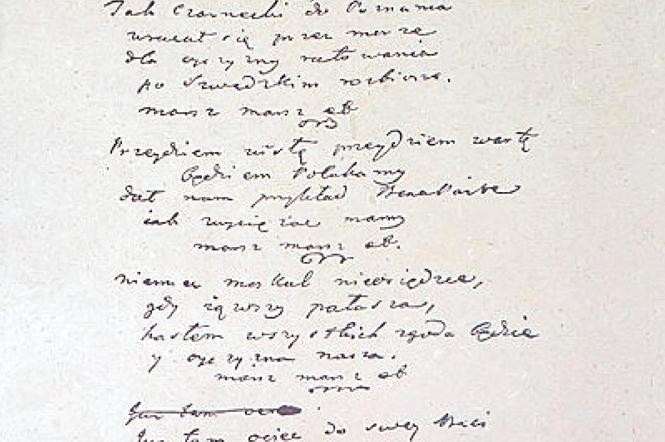 Jak Czarnecki do Poznania
wracał się przez morze
dla oyczyzny ratowania
po Szwedzkim rozbiorze.
marsz marsz etc
Przeydziem wisłę przeydziem wartę
będziem Polakamy
dał nam przykład Bonaparte
iak zwyciężać mamy
marsz marsz etc.
niemiec moskal nieosiędzie,
gdy iąwszy pałasza,
hasłem wszystkich zgoda będzie
y oyczyzna nasza.
marsz marsz etc
Już tam
Już tam ociec do swey Basi